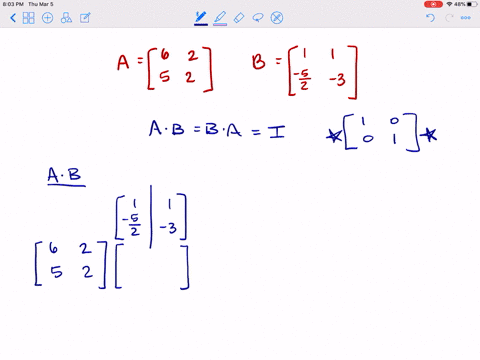 8:03 PM Thu Mar 5 48%
A = [6 2; 5 2] B = [1 1; -5/2 -3]
A·B = B·A = I ★[1 0; 0 1]★
A·B
[1 | 1; -5/2 | -3]
[6 2; 5 2] [ ]